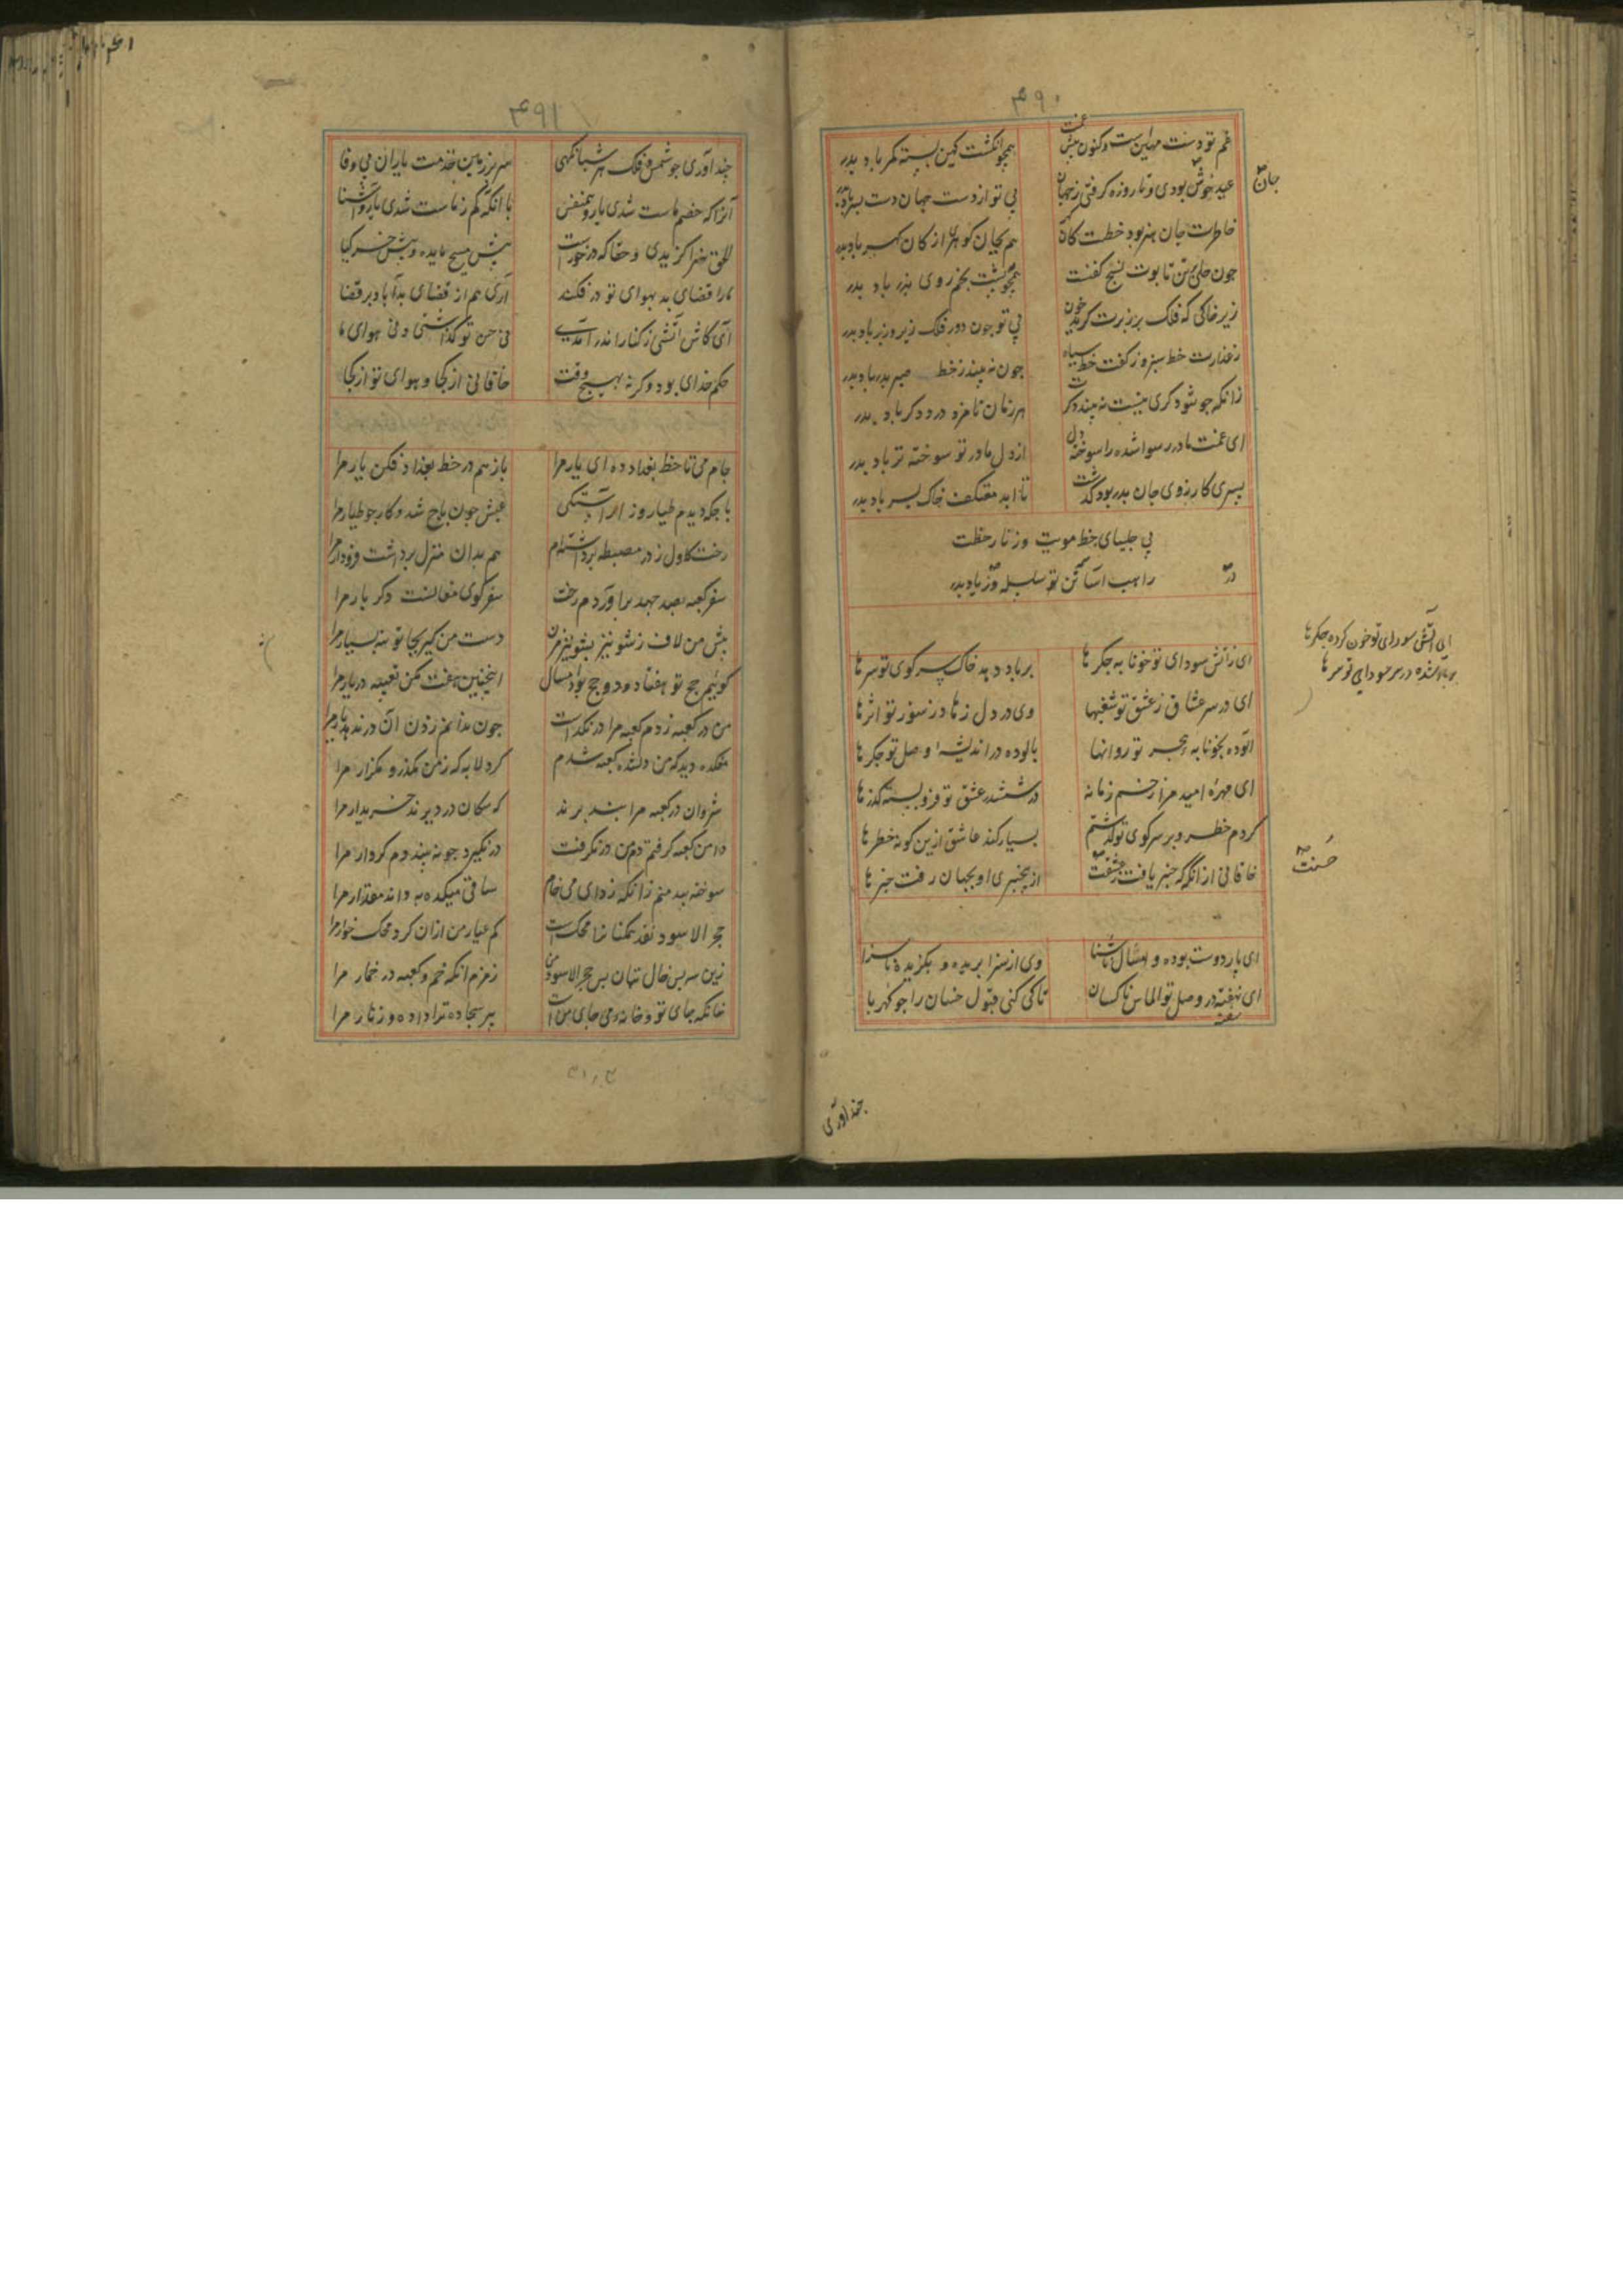 ۴۹۰
غم تو دست مهین است و کنون پیش غمت
همچو انگشت کهین بسته کمر باد پدر
عید خوش بودی و تا روزه گرفتی ز جهان
بی تو از دست جهان دست بسر باد پدر
جان
خاطرت جان هنر بود خطت کان گهر
هم بجان گوهر از کان گهر باد پدر
چون حلی بن تابوت نسیج کفنت
همچو پشت بخم روی بزر باد پدر
زیر خاکی که فلک بر زبرت گرید خون
بی تو چون دور فلک زیر و زبر باد پدر
ز عذارت خط سبز و ز کفت خط سیاه
چون نه بیند ز خط صبر بدر باد پدر
زانکه چو شود گری نیست نه بیند دگرت
هر زمان نامزد درد دگر باد پدر
ای غمت مادر رسوا شده را سوخته دل
از دل مادر تو سوخته تر باد پدر
پسری کارزوی جان پدر بود گذشت
تا ابد معتکف خاک پسر باد پدر
بی چلیپای خط مویت و زنار خطت
راهب آسا تن تو سلسله ور باد پدر
در
ای زآتش سودای تو خونابه جگرها
بر باد دهد خاک سر کوی تو سرها
ای آتش سودای تو خون کرده جگرها
بر باد شده در سر سودای تو سرها
ای در سر عشاق ز عشق تو شغبها
وی در دل زهاد ز سوز تو اثرها
آلوده بخونابه هجر تو روانها
پالوده در اندیشه وصل تو جگرها
ای مهره امید مرا زخم زمانه
در ششدر عشق تو فرو بسته گذرها
کردم خطر و بر سر کوی تو گذشتم
بسیار کند عاشق ازین گونه خطرها
خاقانی از انگه که خبر یافت ز عشقت
از بیخبری او بجهان رفت خبرها
حسنت
ای پار دوست بوده و امسال آشنا
وی از سزا بریده و بگزیده ناسزا
ای نهفته در وصل تو الماس ناکسان
تا کی کنی قبول خسان را چو کهربا
سفته
چند آوری
۴۹۱
چند آوری چو شمس فلک هر شبانگهی
سر بر زمین خدمت یاران بی وفا
آنرا که خصم ماست شدی یار و همنفس
با آنکه کم ز ماست شدی یار و آشنا
الحق سزا گزیدی و حقا که در خورست
پیش مسیح مایده و پیش خر گیا
ما را قضای بد بهوای تو در فکند
آری هم از قضای بد آباد بر قضا
ای کاش آتشی ز کنار اندر آمدی
نی حسن تو گذاشتی و نی هوای ما
حکم خدای بود و گرنه بهیچ وقت
خاقانی از کجا و هوای تو از کجا
جام می تا خط بغداد ده ای یار مرا
باز هم در خط بغداد فکن یار مرا
باجگه دیدم طیار و ز آراستگی
عیش چون باج شد و کار چو طیار مرا
رخت کاول ز در مصطبه برداشته ام
هم بدان منزل برداشت فرود آر مرا
سفر کعبه بصد جهد برآوردم رخت
سفر کوی مغانست دگر بار مرا
پیش من لاف ز شونیز بشونیز مزن
دست من گیر بخاتونیه بسپار مرا
گوئیم حج تو هفتاد و دو حج بود امسال
اینچنین تحفت مکن تعبیه در بار مرا
من در کعبه زدم کعبه مرا در نگشاد
چون ندانم زدن آن در ندهد بار مرا
مغکده دید که من رانده کعبه شدم
کرد لابه که ز من مگذر و مگزار مرا
شروان در کعبه مرا سنبه برند
که سگان در دیرند خریدار مرا
دامن کعبه گرفتم دم من در نگرفت
در نگیرد چو نه بیند دم کردار مرا
سوخته بید منم زانکه زدای می خام
ساقی میکده به داند مقدار مرا
حجر الاسود نقد همگنان را محک است
کم عیارم من ازان کرد محک خوار مرا
زین سپس خال بتان بس حجر الاسود من
زمزم آنگه خم و کعبه در خمار مرا
خانگه جای تو و خانه می جای منست
پیر سجاده ترا داده و زنار مرا